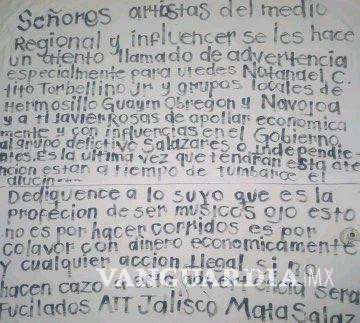 Señores artistas del medio
Regional y influencer se les hace
un atento llamado de advertencia
especialmente para utedes Natanael C.
tito Torbellino Jr y grupos locales de
Hermosillo Guaym Obregon y Navojoa
y a ti Javier Rosas de apollar economica
mente y con influencias en el Gobierno
al grupo delictivo Salazares o Independie-
ntes. Es la ultima vez que tendran esta ate
ncion estan a tiempo de tumbarce el
alucin---
Dediquence a lo suyo que es la
profecion de ser musicos ojo esto
no es por hacer corridos es por
colavor con dinero economicamente
y cualquier accion Ilegal si no
hacen cazo a esta
Fucilados ATT Jalisco Mata Salaz
VANGUARDIA MX